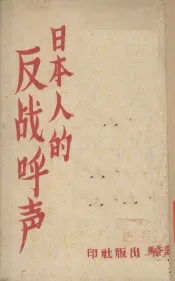 日本人的
反战呼声
出版社印